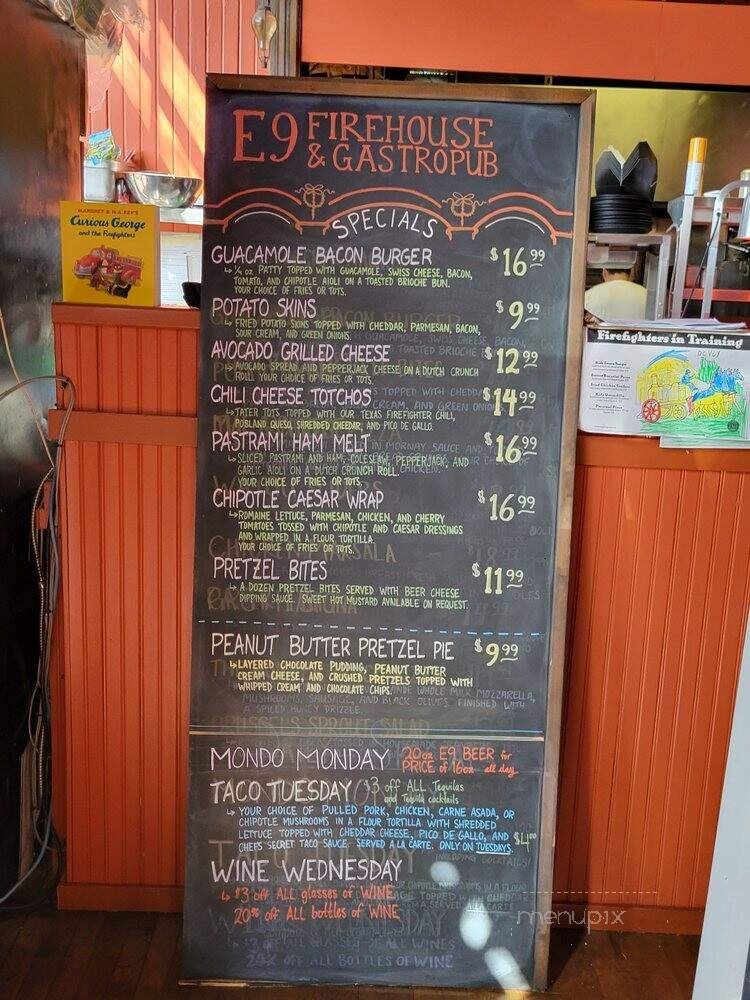 E9 FIREHOUSE
& GASTROPUB
SPECIALS
GUACAMOLE BACON BURGER $16.99
↳ 1/4 oz PATTY TOPPED WITH GUACAMOLE, SWISS CHEESE, BACON,
TOMATO, AND CHIPOTLE AIOLI ON A TOASTED BRIOCHE BUN.
YOUR CHOICE OF FRIES OR TOTS.
POTATO SKINS $9.99
↳ FRIED POTATO SKINS TOPPED WITH CHEDDAR, PARMESAN, BACON,
SOUR CREAM, AND GREEN ONIONS.
AVOCADO GRILLED CHEESE $12.99
↳ AVOCADO SPREAD AND PEPPERJACK CHEESE ON A DUTCH CRUNCH
ROLL. YOUR CHOICE OF FRIES OR TOTS.
CHILI CHEESE TOTCHOS $14.99
↳ TATER TOTS TOPPED WITH OUR TEXAS FIREFIGHTER CHILI,
POBLANO QUESO, SHREDDED CHEDDAR, AND PICO DE GALLO.
PASTRAMI HAM MELT $16.99
↳ SLICED PASTRAMI AND HAM, COLESLAW, PEPPERJACK, AND
GARLIC AIOLI ON A DUTCH CRUNCH ROLL.
YOUR CHOICE OF FRIES OR TOTS.
CHIPOTLE CAESAR WRAP $16.99
↳ ROMAINE LETTUCE, PARMESAN, CHICKEN, AND CHERRY
TOMATOES TOSSED WITH CHIPOTLE AND CAESAR DRESSINGS
AND WRAPPED IN A FLOUR TORTILLA.
YOUR CHOICE OF FRIES OR TOTS.
PRETZEL BITES $11.99
↳ A DOZEN PRETZEL BITES SERVED WITH BEER CHEESE
DIPPING SAUCE. SWEET HOT MUSTARD AVAILABLE ON REQUEST.
PEANUT BUTTER PRETZEL PIE $9.99
↳ LAYERED CHOCOLATE PUDDING, PEANUT BUTTER
CREAM CHEESE, AND CRUSHED PRETZELS TOPPED WITH
WHIPPED CREAM AND CHOCOLATE CHIPS.
WHOLE MILK MOZZARELLA,
MUSHROOMS, SAUSAGE, AND BLACK OLIVES. FINISHED WITH
A SPICED HONEY DRIZZLE.
MONDO MONDAY 20oz E9 BEER for
PRICE of 16oz all day
TACO TUESDAY $3 off ALL Tequilas
and Tequila cocktails
↳ YOUR CHOICE OF PULLED PORK, CHICKEN, CARNE ASADA, OR
CHIPOTLE MUSHROOMS IN A FLOUR TORTILLA WITH SHREDDED
LETTUCE TOPPED WITH CHEDDAR CHEESE, PICO DE GALLO, AND
CHEFS SECRET TACO SAUCE. SERVED A LA CARTE. ONLY ON TUESDAYS. $4.00
WINE WEDNESDAY
↳ $3 off ALL glasses of WINE
20% off ALL bottles of WINE
ALL BOTTLES OF WINE
MARGRET & H.A. REY'S
Curious George
and the Firefighters
Firefighters in Training
menupix